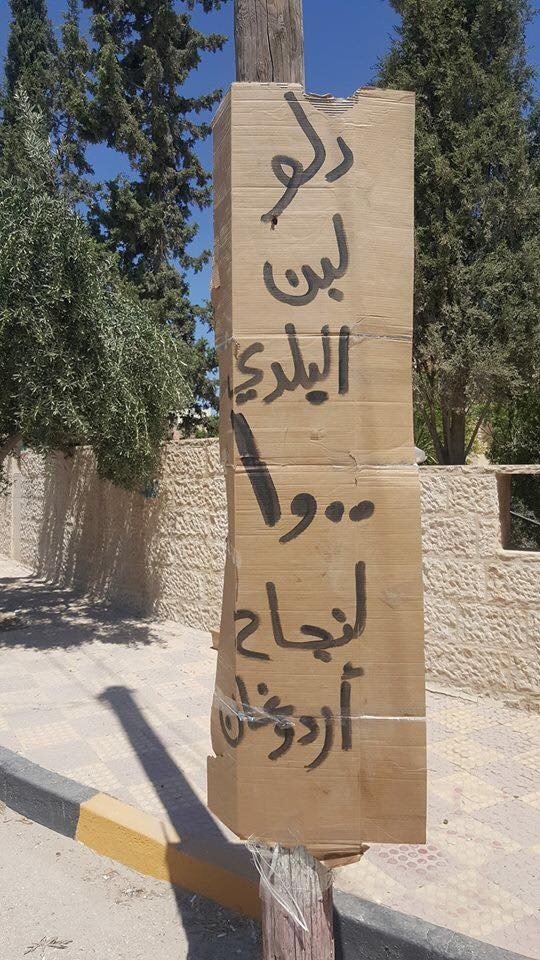 دلو
لبن
البلدي
..وا
لنجاح
أردوغان